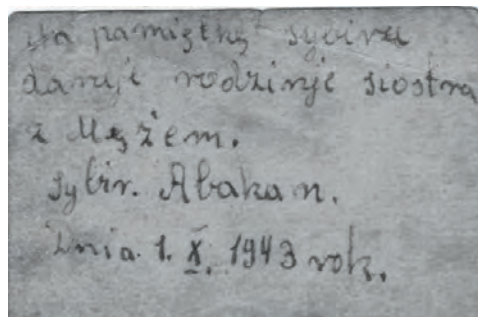 Na pamiętkę sybiru
daruje rodzinje siostra
z Mężem.
Sybir. Abakan.
Dnia. 1. X. 1943 rok.